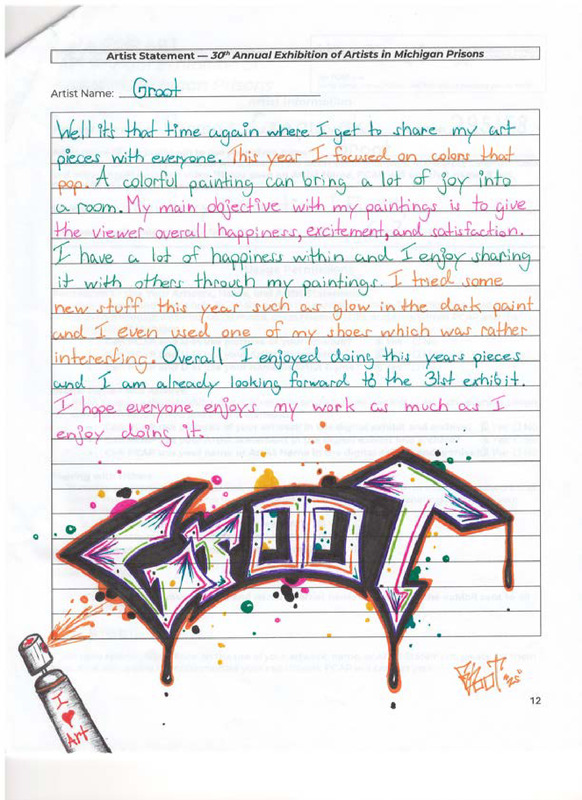 Artist Statement — 30th Annual Exhibition of Artists in Michigan Prisons
Artist Name: Groot
Well it's that time again where I get to share my art
pieces with everyone. This year I focused on colors that
pop. A colorful painting can bring a lot of joy into
a room. My main objective with my paintings is to give
the viewer overall happiness, excitement, and satisfaction.
I have a lot of happiness within and I enjoy sharing
it with others through my paintings. I tried some
new stuff this year such as glow in the dark paint
and I even used one of my shoes which was rather
interesting. Overall I enjoyed doing this years pieces
and I am already looking forward to the 31st exhibit.
I hope everyone enjoys my work as much as I
enjoy doing it.
GROOT
I ♥
Art
GROOT '25
12